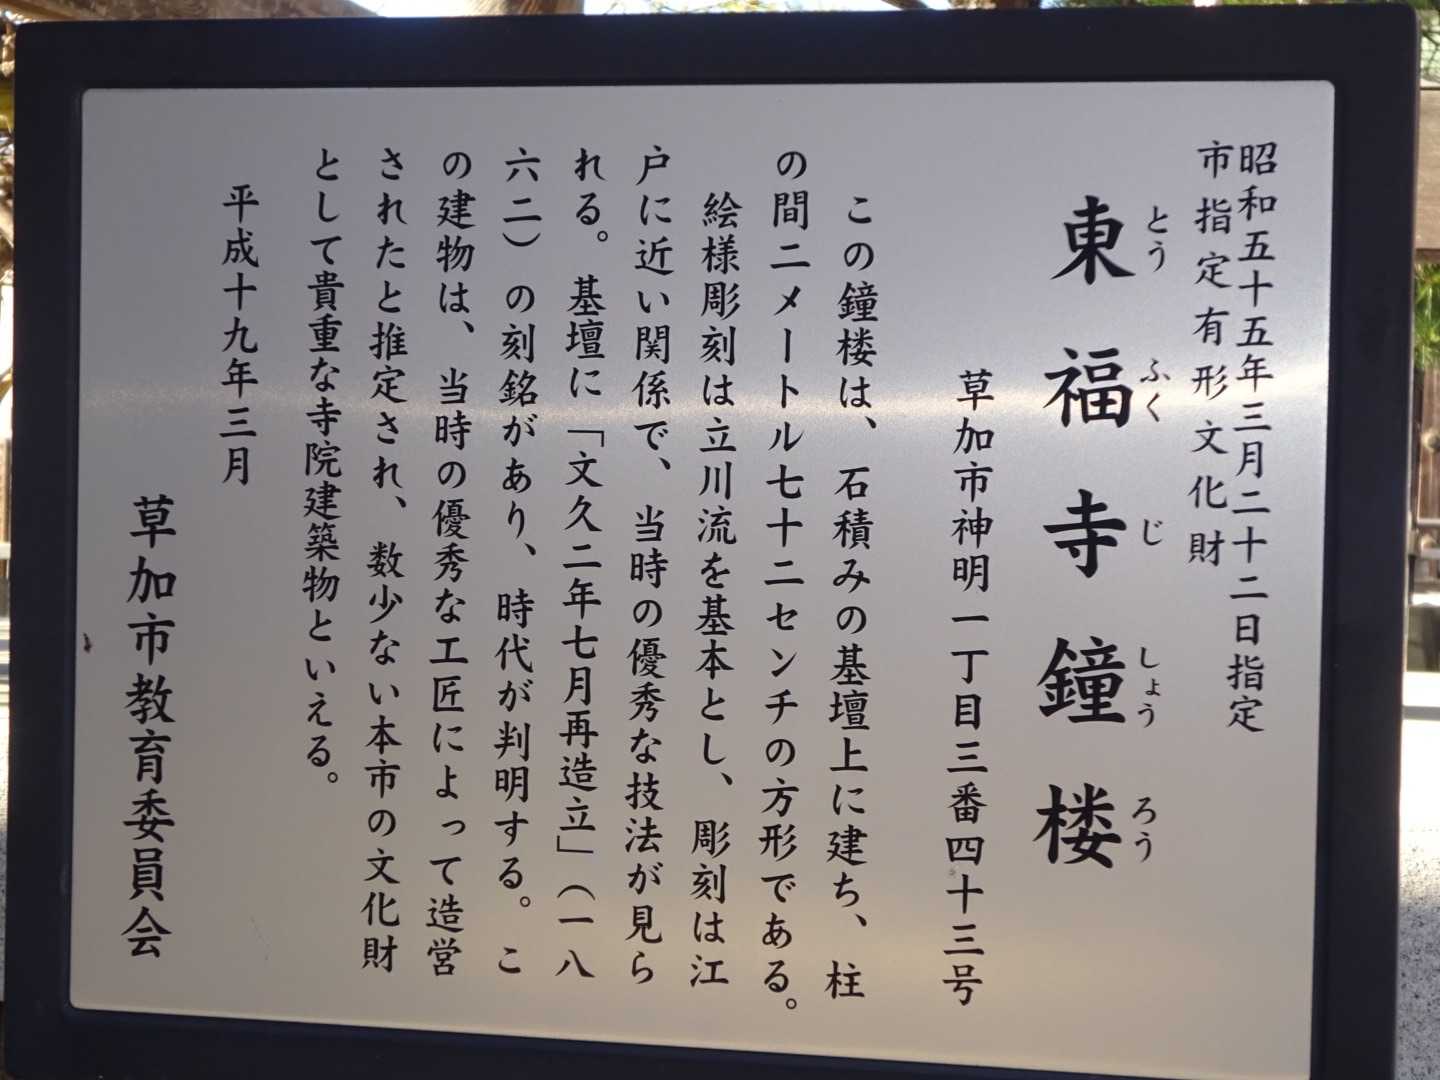 昭和五十五年三月二十二日指定
市指定有形文化財
東福寺鐘楼
とうふくじしょうろう
草加市神明一丁目三番四十三号
この鐘楼は、石積みの基壇上に建ち、柱
の間二メートル七十二センチの方形である。
絵様彫刻は立川流を基本とし、彫刻は江
戸に近い関係で、当時の優秀な技法が見ら
れる。基壇に「文久二年七月再造立」（一八
六二）の刻銘があり、時代が判明する。こ
の建物は、当時の優秀な工匠によって造営
されたと推定され、数少ない本市の文化財
として貴重な寺院建築物といえる。
平成十九年三月
草加市教育委員会